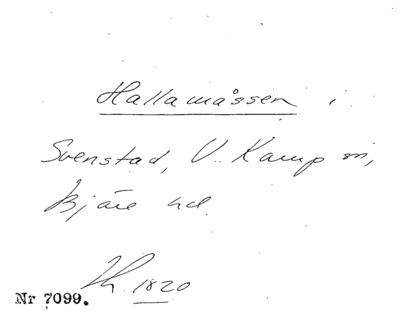 Hallamåssen i
Svenstad, V. Karup sn,
Bjäre hd.
1820
Nr 7099.